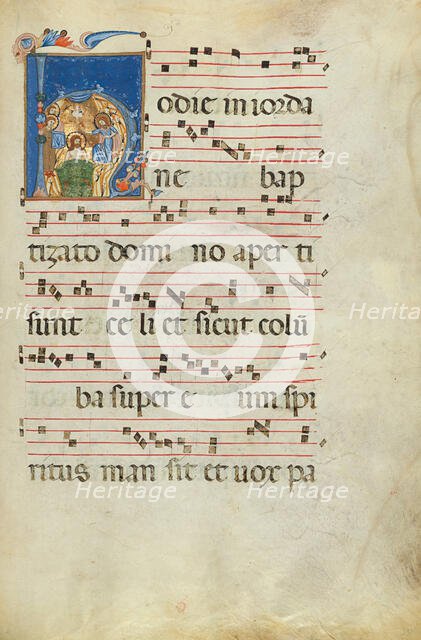 Hodie in iorda
ne bap
tizato domi no aper ti
sunt ce li et sicut colū
ba super e um spi
ritus man sit et uox pa
Heritage Heritage Heritage
Heritage Heritage Heritage
Heritage Heritage Heritage